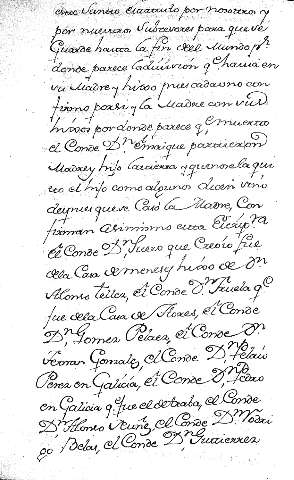 por nosotros y
por nuestros Subcesores para que se
Guarde hasta la fin del Mundo pr
donde parece la division qe. havia en
su Madre y hixos pues cada uno con
firmo por si y la Madre con sus
hixos por donde parece qe. muerto
el Conde Dn. Enrique partieron
Madre y hijo la tierra y que no se la qui
to el hijo como algunos dicen sino
despues que se Caso la Madre, Con
firman asimismo esta
el Conde Dn. Suero que Creo io fue
de la Casa de meneses hixo de Dn.
Alonso tellez, el Conde Dn. fruela qe.
fue de la Casa de Flores, el Conde
Dn. Gomez Pelaez, el Conde Dn.
Fernan Gonzalez, el Conde Dn. Pelaio
Perez en Galicia, el Conde Dn. Pedro
en Galicia qe. fue el de traba, el Conde
Dn. Alonso Nuñez, el Conde Dn. Rodri
go Belas, el Conde Dn. Gutierrez